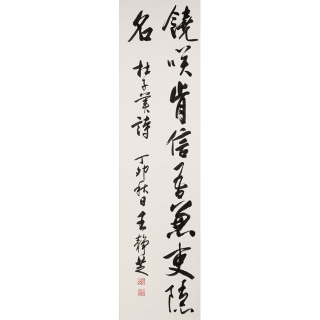 饒咲肯信吾兼吏隱
名 杜子美詩 丁卯秋日王靜芝